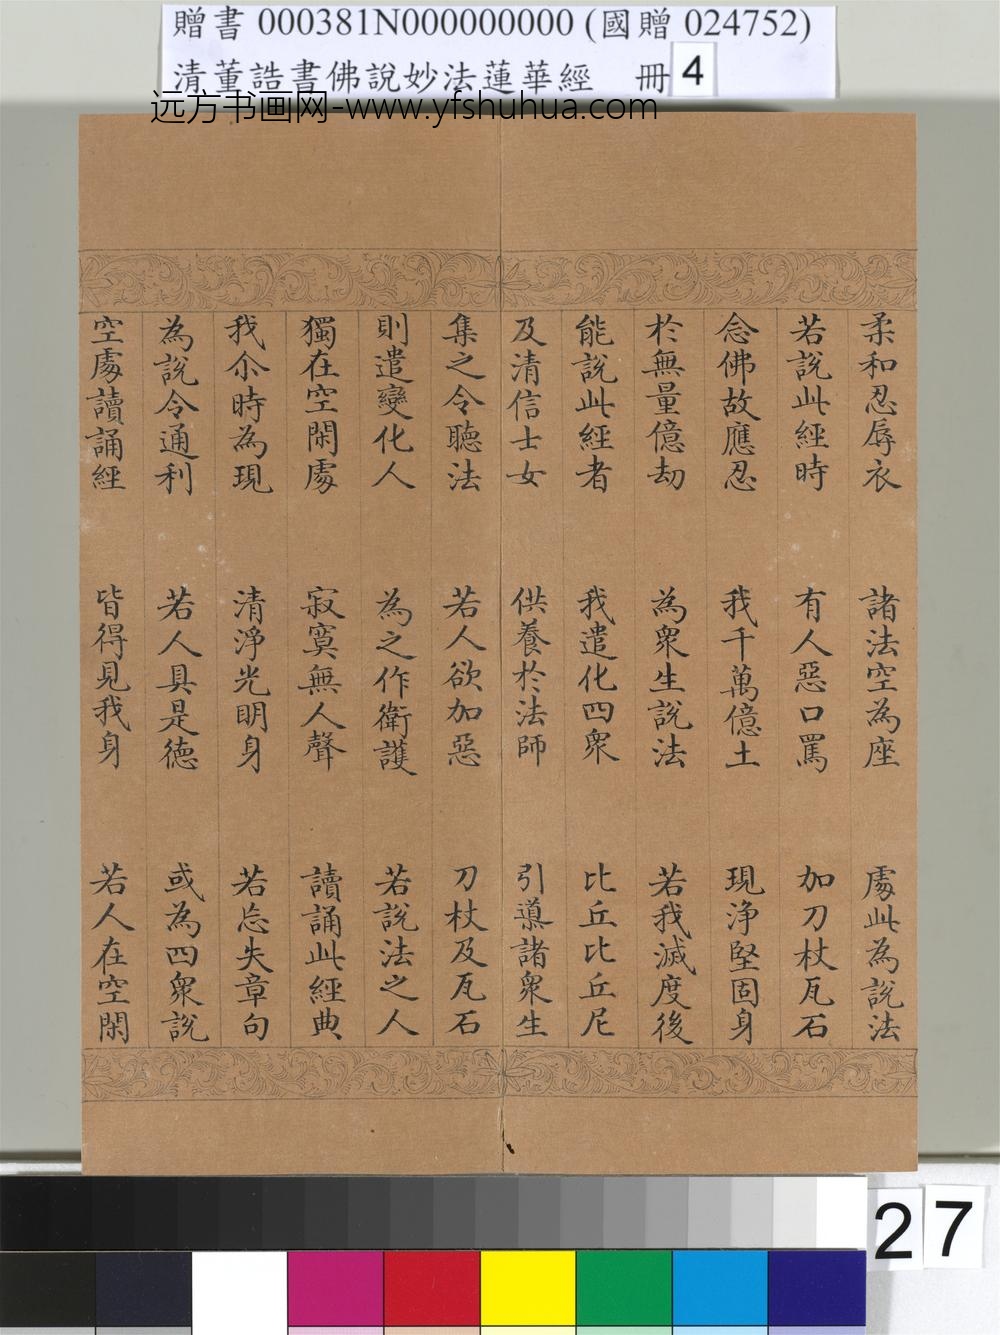 贈書 000381N000000000 (國贈 024752)
清董誥書佛說妙法蓮華經 冊 4
远方书画网-www.yfshuhua.com
柔和忍辱衣 諸法空為座 處此為說法
若說此經時 有人惡口罵 加刀杖瓦石
念佛故應忍 我千萬億土 現淨堅固身
於無量億劫 為眾生說法 若我滅度後
能說此經者 我遣化四眾 比丘比丘尼
及清信士女 供養於法師 引導諸眾生
集之令聽法 若人欲加惡 刀杖及瓦石
則遣變化人 為之作衛護 若說法之人
獨在空閑處 寂寞無人聲 讀誦此經典
我尒時為現 清淨光明身 若忘失章句
為說令通利 若人具是德 或為四眾說
空處讀誦經 皆得見我身 若人在空閑
27